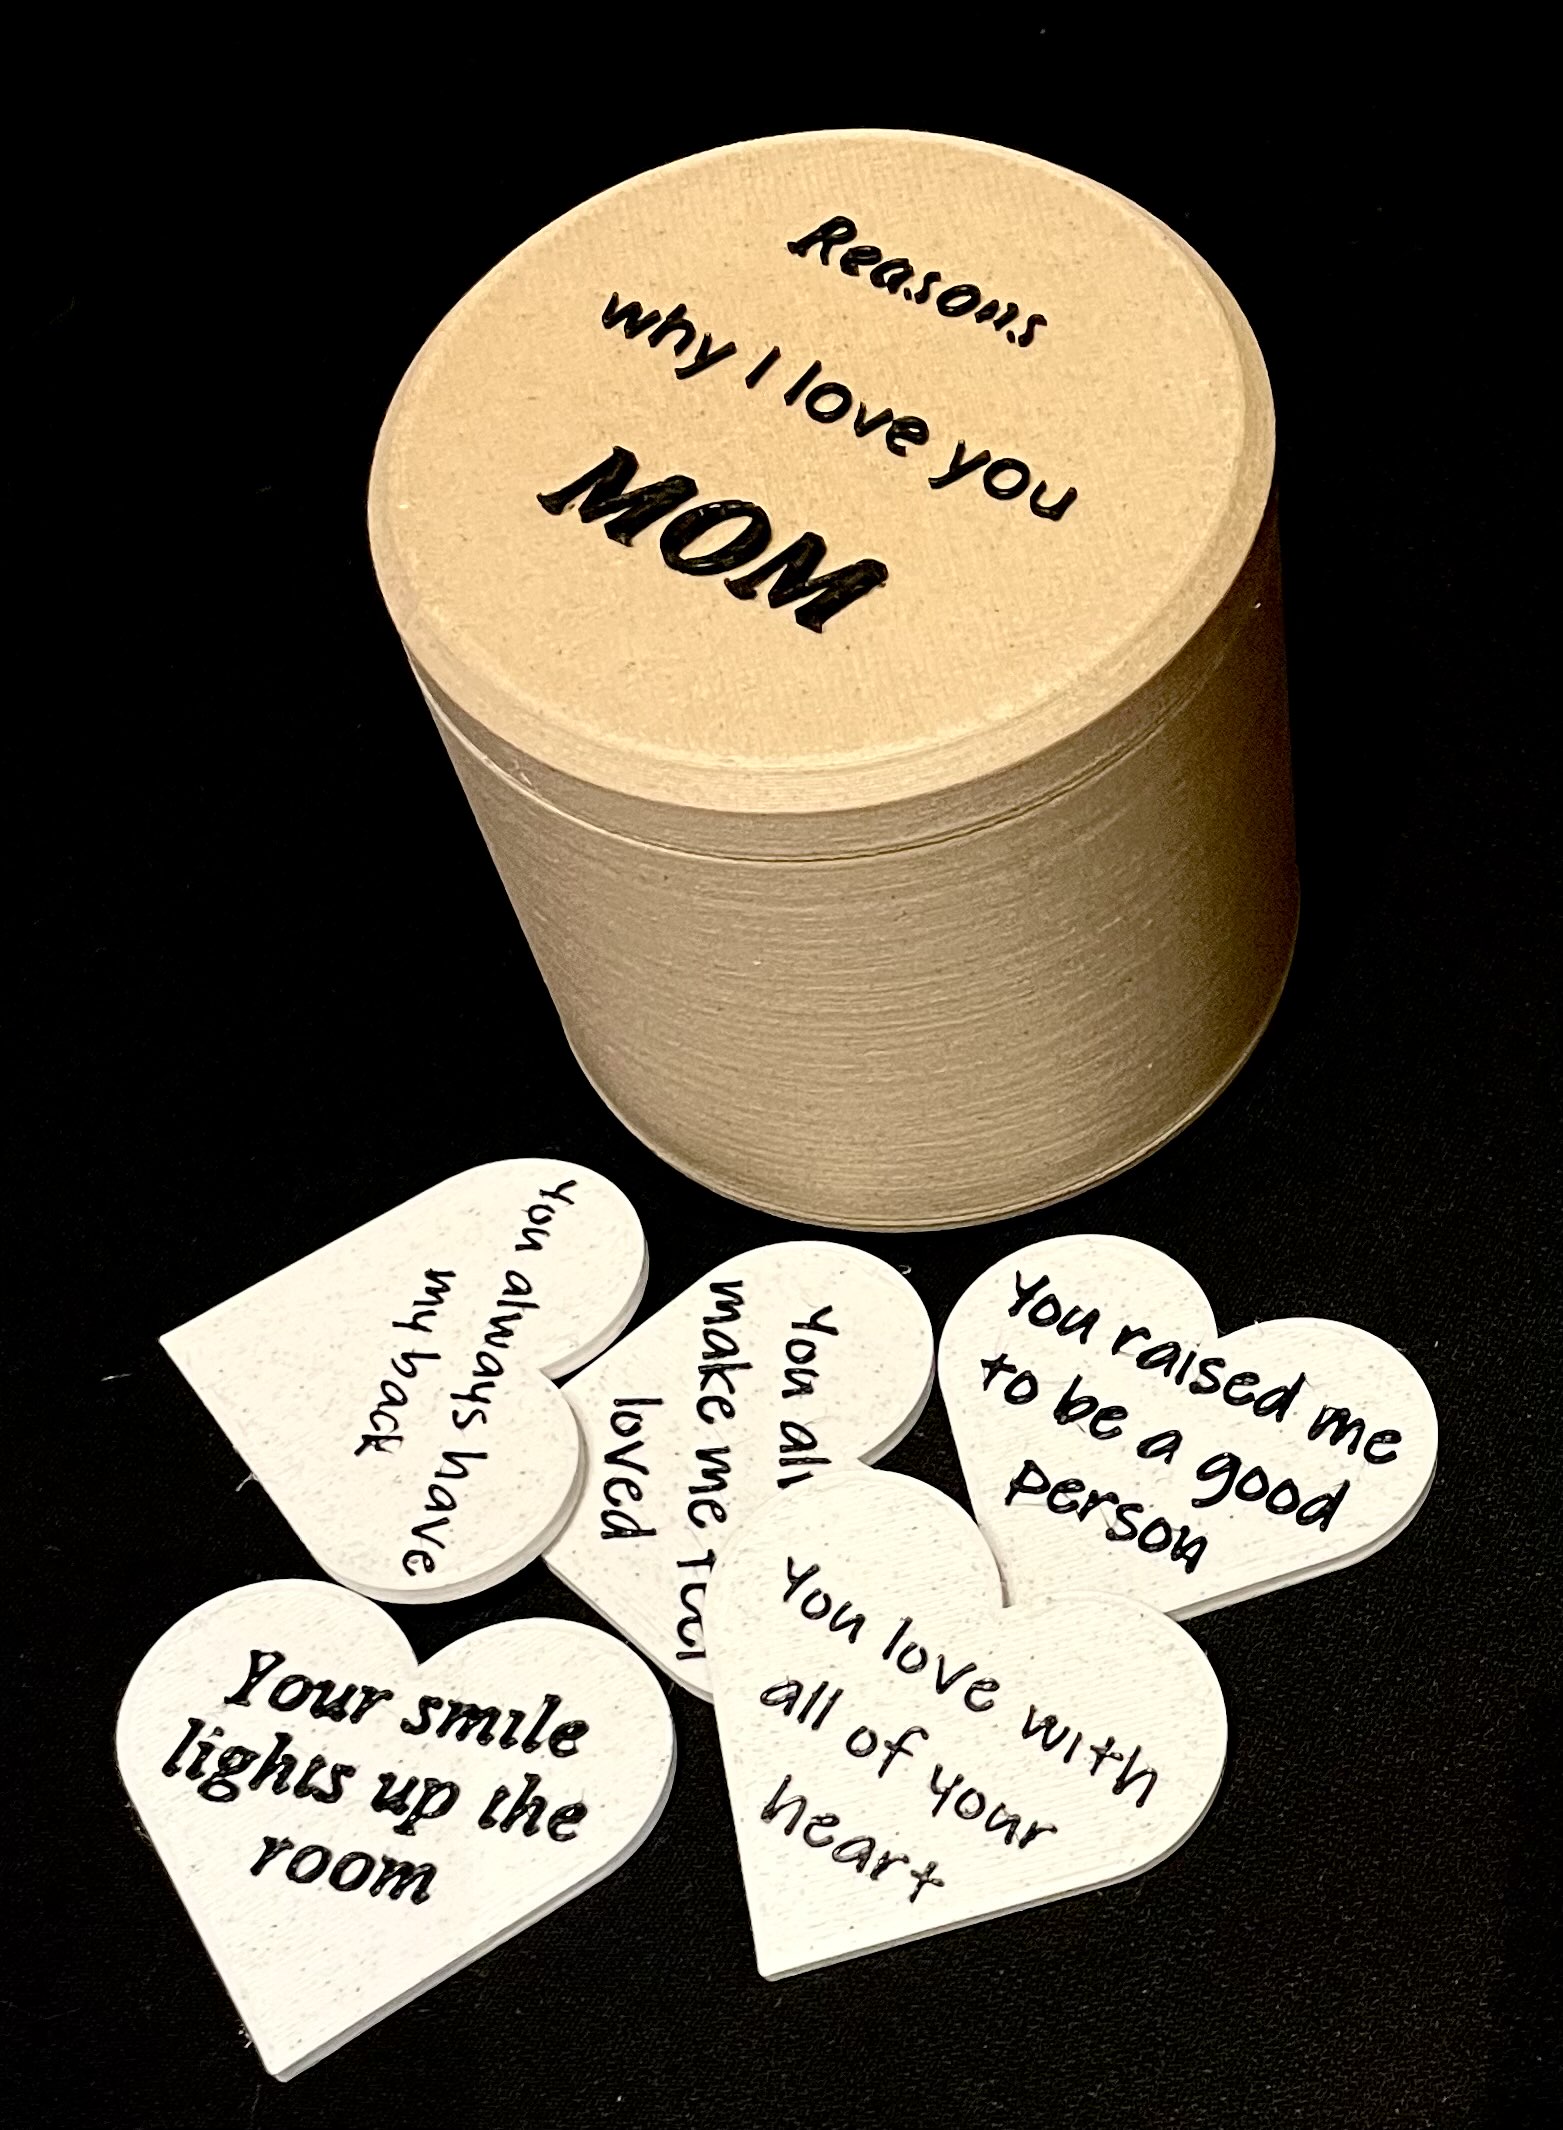 Reasons
why I love you
MOM
You always have
my back
You
make me
loved
You raised me
to be a good
person
Your smile
lights up the
room
You love with
all of your
heart